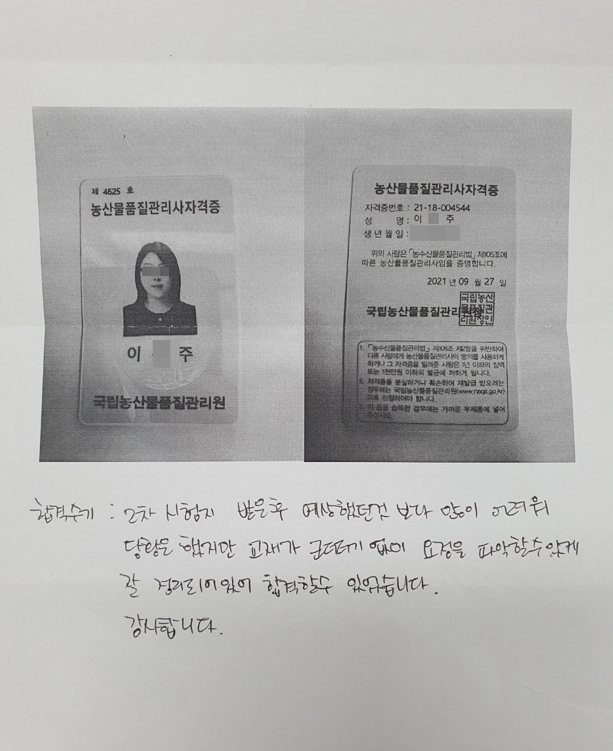 제 4625 호
농산물품질관리사자격증
이 주
국립농산물품질관리원
농산물품질관리사자격증
자격증번호 : 21-18-004544
성 명 : 이 주
생년월일 :
위의 사람은 「농수산물품질관리법」 제105조에
따른 농산물품질관리사임을 증명합니다.
2021 년 09 월 27 일
국립농산물품질관리원장
국립농산
물품질관
리원장인
1. 「농수산물품질관리법」 제108조 제2항을 위반하여
다른 사람에게 농산물품질관리사의 명의를 사용하게
하거나 그 자격증을 빌려준 사람은 1년 이하의 징역
또는 1천만원 이하의 벌금에 처하게 됩니다.
2. 자격증을 분실하거나 훼손하여 재발급 받으려는
경우에는 국립농산물품질관리원(www.naqs.go.kr)
으로 신청하여야 합니다.
3. 이 증을 습득한 경우에는 가까운 우체통에 넣어
주십시오.
합격수기 : 2차 시험지 받은후 예상했던것 보다 많이 어려워
당황은 했지만 교재가 군더더기 없이 요점을 파악할수있게
잘 정리되어있어 합격할수 있었습니다.
감사합니다.